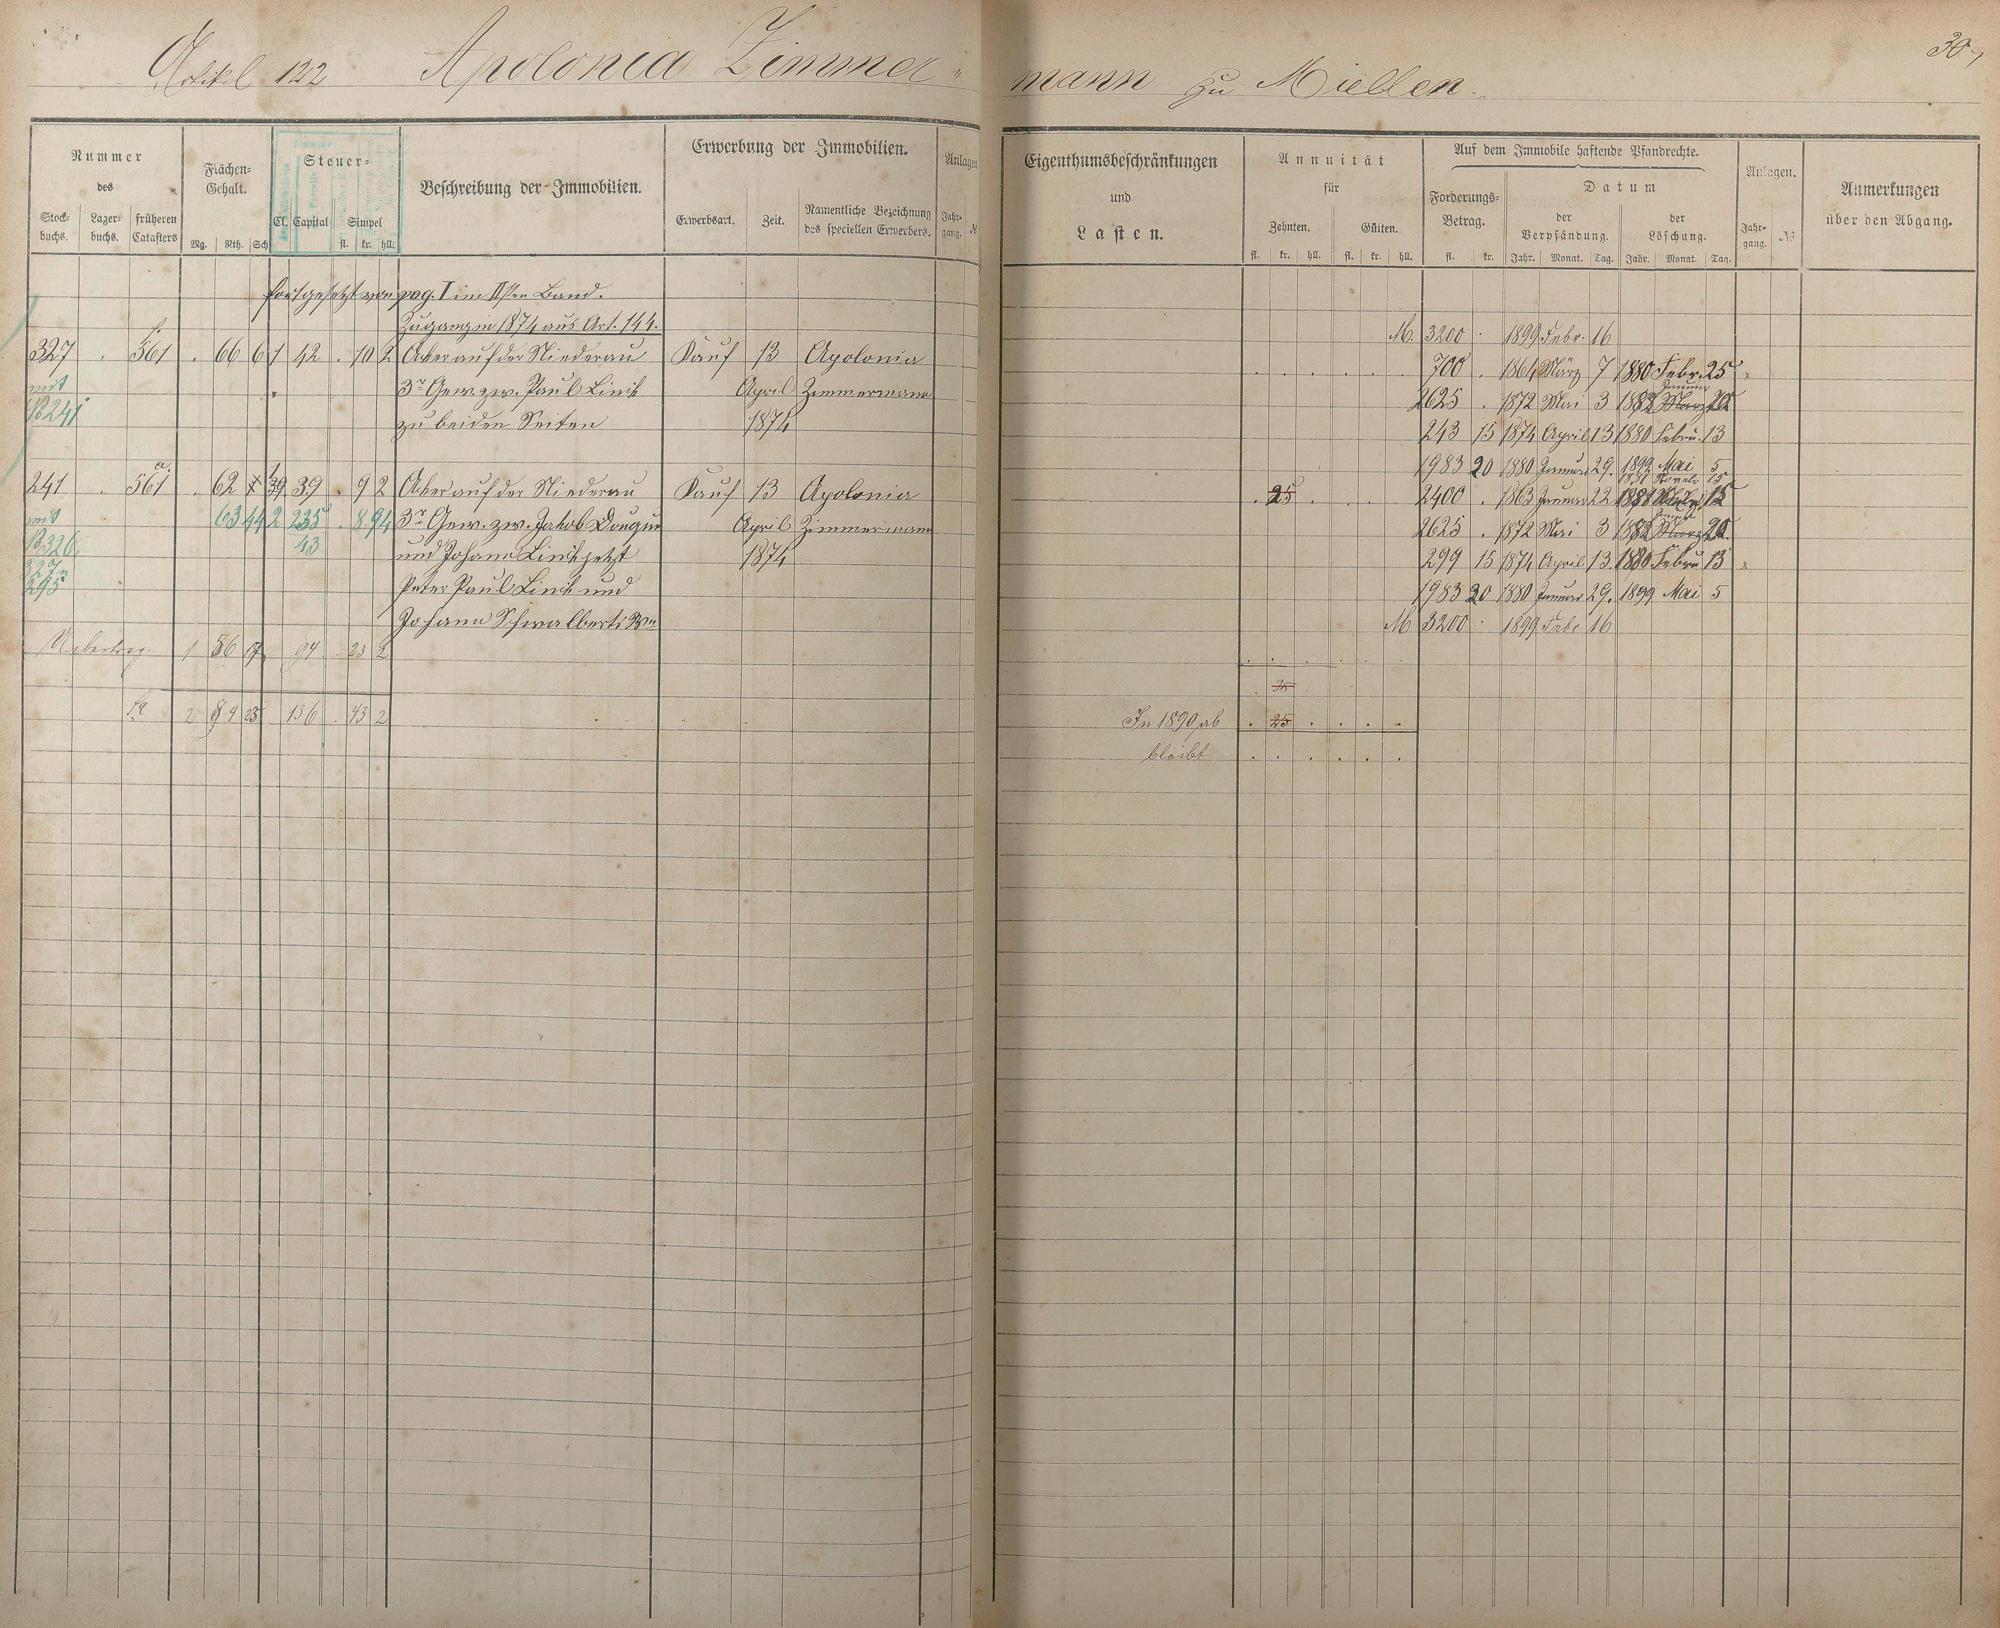 Artikel 122 Apolonia Zimmer-
mann zu Miellen.
307
Nummer
des
Stock-
buchs.
Lager-
buchs.
früheren
Catasters
Flächen-
Gehalt.
Mg. Rth. Sch
Steuer-
Cl. Capital Simpel
fl. kr. hll.
Beschreibung der Immobilien.
Erwerbung der Immobilien.
Erwerbsart. Zeit.
Namentliche Bezeichnung
des speciellen Erwerbers.
Anlagen
Jahr-
gang. №
Eigenthumsbeschränkungen
und
Lasten.
Annuität
für
Zehnten. Gülten.
fl. kr. hll. fl. kr. hll.
Auf dem Immobile haftende Pfandrechte.
Forderungs-
Betrag.
fl. kr.
Datum
der
Verpfändung.
der
Löschung.
Jahr. Monat. Tag. Jahr. Monat Tag.
Anlagen.
Jahr-
gang. №
Anmerkungen
über den Abgang.
fortgesetzt von pag. I im IIten Band.
Zugang in 1874 aus Art. 144.
327 . 561 . 66 6 1 42 . 10 2 Acker auf der Niederau Kauf 13 Apolonia
mit 3r Gew. zw. Paul Link April Zimmermann
B241 zu beiden Seiten 1874
241 . 561 a . 62 39 39 . 9 2 Acker auf der Niederau Kauf 13 Apolonia
mit 63 44 2 235 . 8 94 3r Gew. zw. Jakob April Zimmermann
B326 43 und Johann Link jetzt 1874
327 u
295 Peter Paul Link und
Johann Schwalberts
Uebertrag 1 56 94 . 23 2
Sa 2 136 . 43 2
M. 3200 . 1899 Febr. 16
700 . 1864 März 7 1880 Febr. 25
2625 . 1872 Mai 3 1882 Januar 20
243 15 1874 April 13 1880 Febru. 13
1983 20 1880 Januar 29. 1899 Mai 5
25 2400 . 1863 Januar 22 1881 15
2625 . 1872 Mai 3 1882 20.
299 15 1874 April 13. 1880 Febru 13
1983 20 1880 Januar 29. 1899 Mai 5
M 3200 . 1899 Febr 16
In 1890 ab . 25 . . . .
bleibt . . . . . .